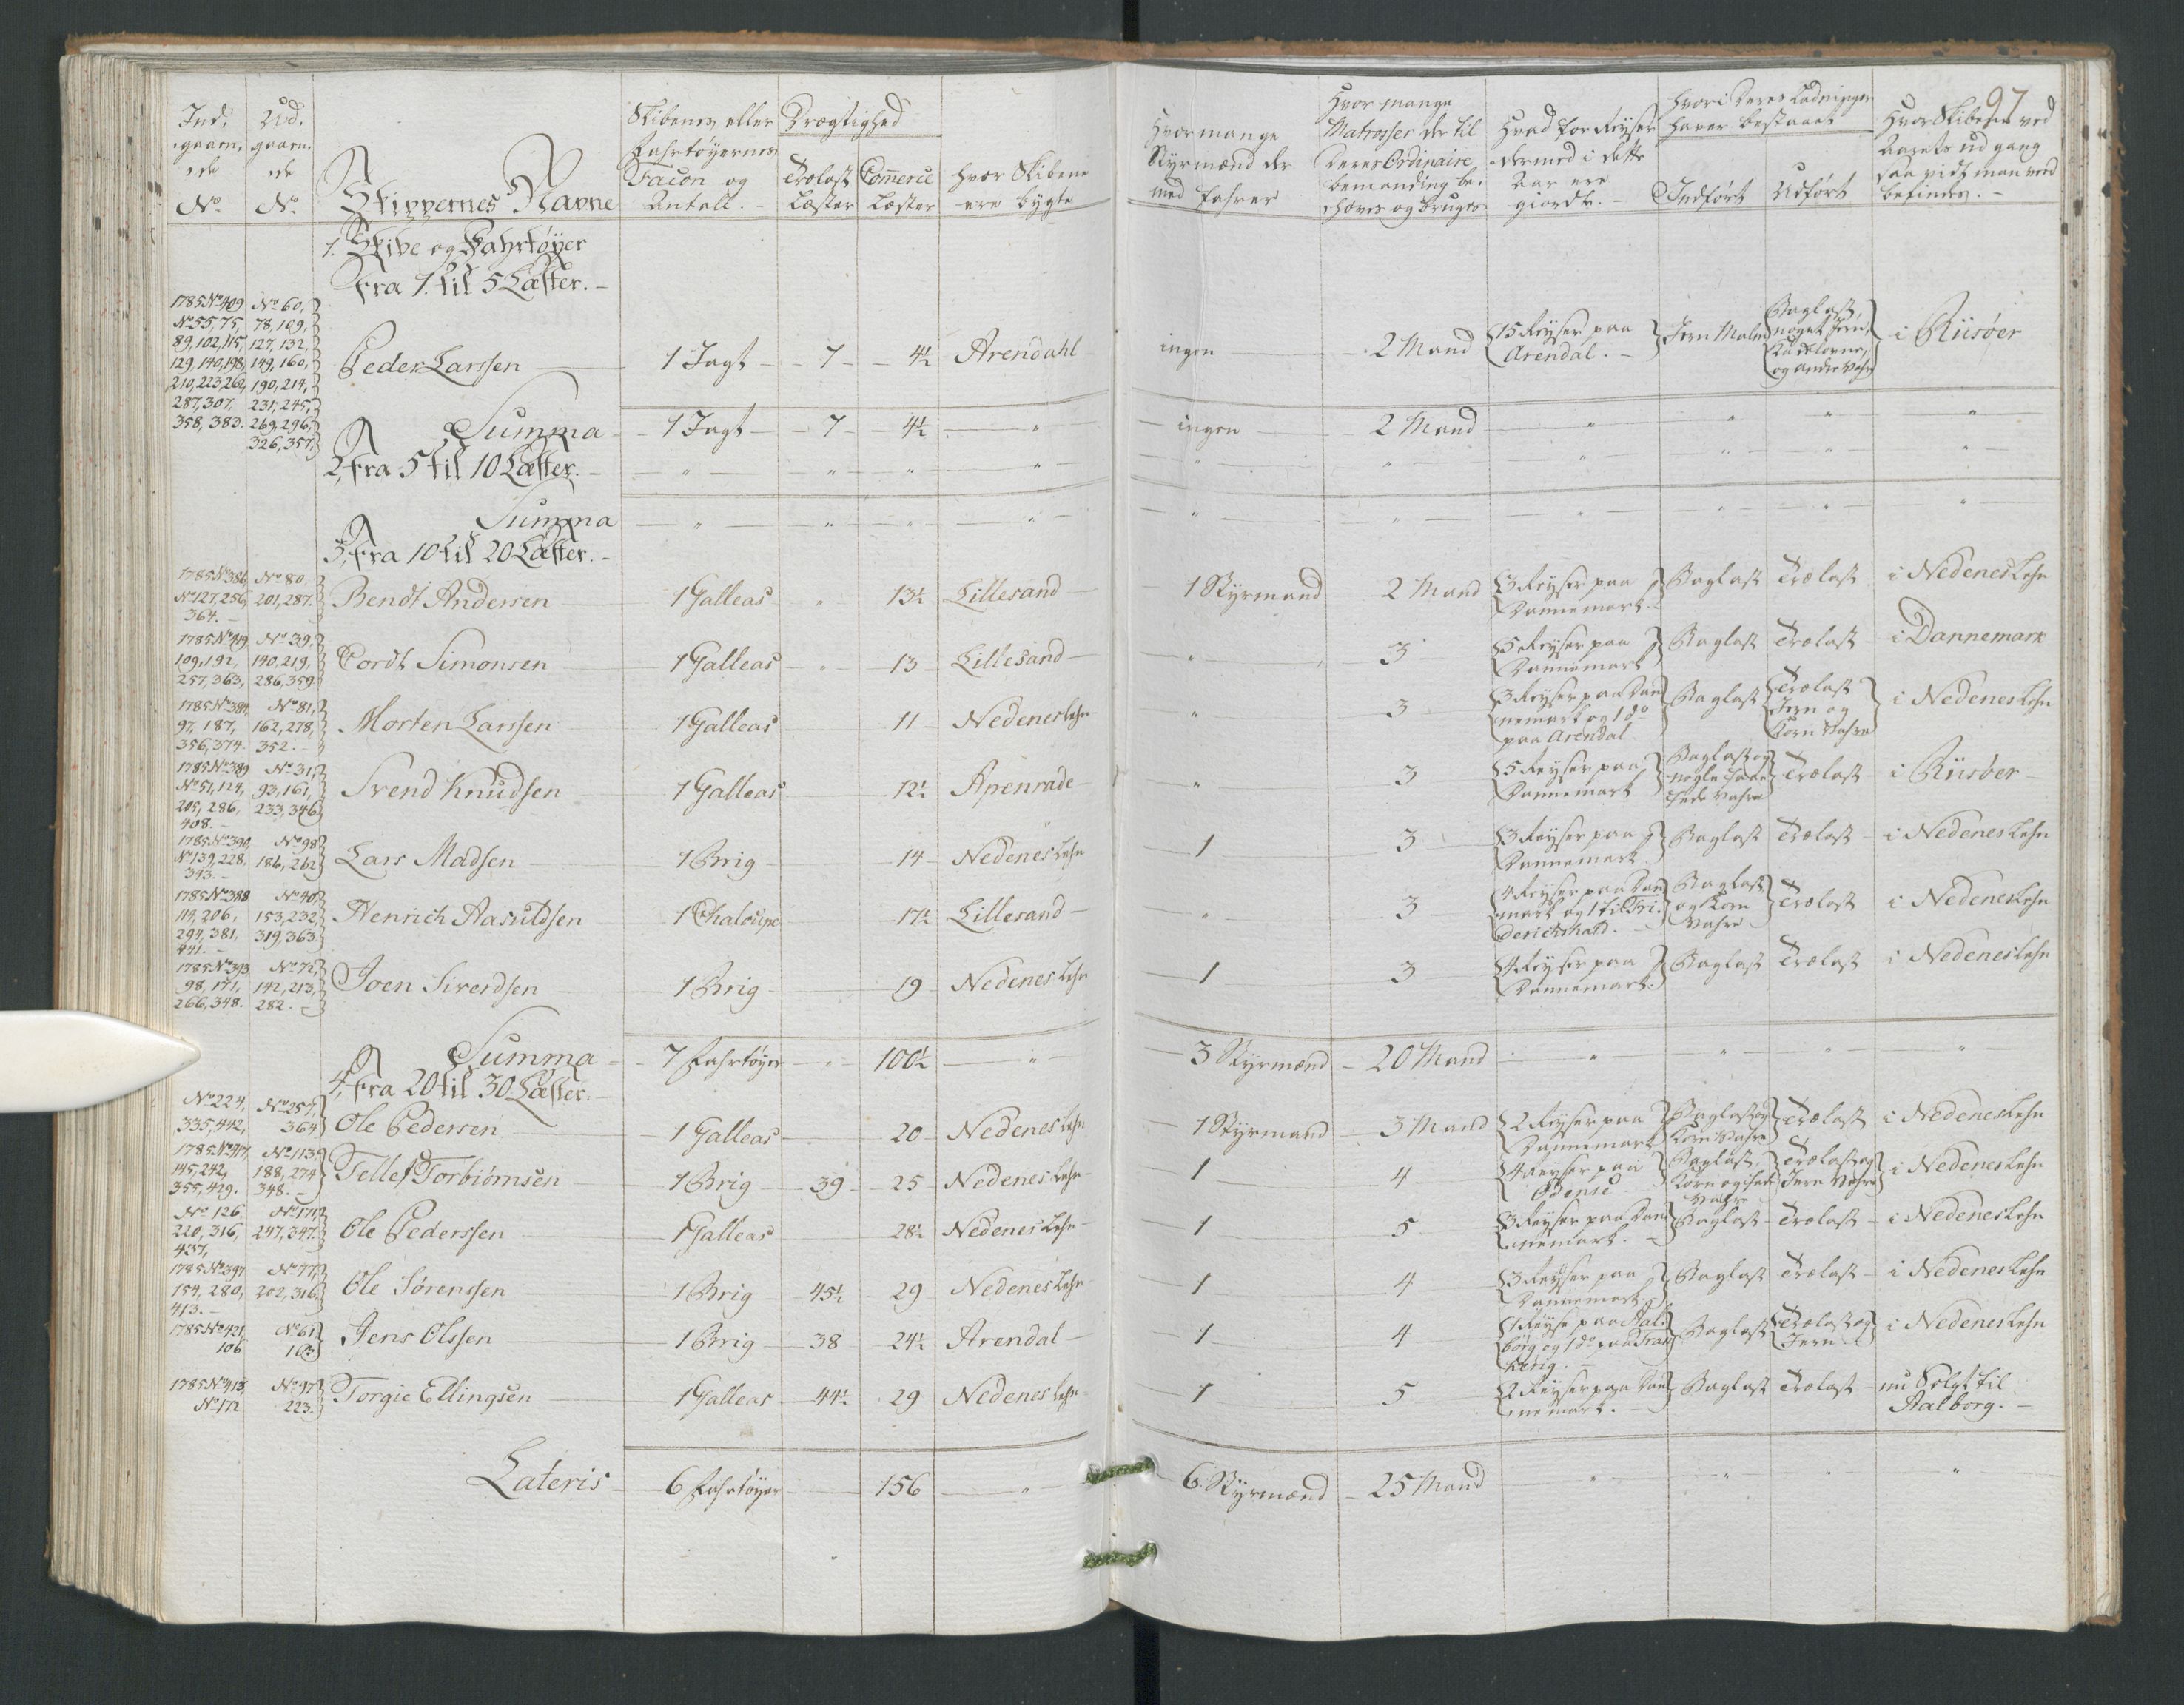 97
Ind, Ud,
gaaen, gaaen,
de de
No. No.
Skippernes Navne
Skibenes eller
Fahrtøyernes
Facon og
Antall.
Drægtighed
Trælast Com̄erce
Læster Læster
hvor Skibene
ere bygte
Hvormange
Styrmænd der
med fahrer
Hvor mange
Matrosser der til
Deres Ordinaire
bemanding be,
høves og bruges
Hvad for Reyser
dermed i dette
Aar ere
giordte.
hvori Deres Ladninger
haver bestaaet
Indført Udført
Hvor Skibene ved
Aarets udgang
saa vidt man veed
befindes.
1. Skibe og Fahrtøyer
fra 1. til 5 Læster.
1785 No 409 No 60,
No 55, 75, 78, 109,
89, 102, 115, 127, 132,
129, 140, 198, 149, 160,
210, 223, 262, 190, 214,
287, 307, 231, 245,
358, 383. 269, 296,
326, 357,
Peder Larssen 1 Jagt 7 4½ Arendahl ingen 2 Mand 15 Reyser paa Arendal. Jern Malm Baglast, noget Jern, og andre Vahre i Riisøer
Summa 1 Jagt 7 4½ " ingen 2 Mand " " " "
2, fra 5 til 10 Læster. " " " " " " " " " "
Summa " " " " " " " " " "
3, fra 10 til 20 Læster.
1785 No 386, No 80,
No 127, 256, 201, 287.
364.
Bendt Andersen 1 Galleas " 13½ Lillesand 1 Styrmand 2 Mand 3 Reyser paa Dannemark. Baglast Trælast i Nedenes Lehn
1785 No 419 No 39,
109, 192, 140, 219,
257, 363, 286, 359.
Cordt Simonsen 1 Galleas " 13 Lillesand " 3 5 Reyser paa Dannemark Baglast Trælast i Dannemark
1785 No 384, No 81,
97, 187, 162, 278,
356, 374. 352.
Morten Larssen 1 Galleas 11 Nedenes Lehn " 3 3 Reyser paa Dannemark og 1 do paa Arendal Baglast Trælast Jern og Korn Vahre i Nedenes Lehn
1785 No 389 No 31,
No 51, 124, 93, 161,
205, 286, 233, 346
408.
Svend Knudsen 1 Galleas 12½ Apenrade " 3 5 Reyser paa Dannemark Baglast og nogle Vahre Trælast i Riisøer
1785 No 390, No 98
No 139, 228, 186, 262
343.
Lars Madsen 1 Brig 14 Nedenes Lehn 1 3 3 Reyser paa Dannemark Baglast Trælast i Nedenes Lehn
1785 No 388 No 40,
114, 206, 153, 232,
294, 381, 319, 363.
441.
Henrich Aasuldsen 1 Chaloupe 17½ Lillesand " 3 4 Reyser paa Danmark og 1 til Friderichshald. Baglast og Korn Vahre Trælast i Nedenes Lehn
1785 No 393, No 72,
98, 171, 142, 213,
266, 348. 282.
Joen Siverdsen 1 Brig 19 Nedenes Lehn 1 3 4 Reyser paa Dannemark. Baglast Trælast i Nedenes Lehn
Summa 7 Fahrtøyer " 100½ " 3 Styrmænd 20 Mand " " " "
4, fra 20 til 30 Læster.
No 224, No 257,
335, 442, 364
Ole Pedersen 1 Galleas 20 Nedenes Lehn 1 Styrmand 3 Mand 2 Reyser paa Dannemark Baglast og Korn Vahre Trælast i Nedenes Lehn
1785 No 417, No 113,
145, 242, 188, 274
355, 429. 348.
Tellef Torbiørnsen 1 Brig 39 25 Nedenes Lehn 1 4 4 Reyser paa Odense Baglast, Korn og Vahre Trælast og Jern Vahre i Nedenes Lehn
No 126 No 174,
220, 316, 247, 347.
437,
Ole Pederssen 1 Galleas 28½ Nedenes Lehn 1 5 3 Reyser paa Dannemark. Baglast Trælast i Nedenes Lehn
1785 No 397 No 77,
154, 280, 202, 316
413.
Ole Sørenssen 1 Brig 45½ 29 Nedenes Lehn 1 4 3 Reyser paa Dannemark. Baglast Trælast i Nedenes Lehn
1785 No 421 No 61
106 163
Jens Olssen 1 Brig 38 24½ Arendal 1 4 1 Reyse paa Aalborg og 1 do paa Frankerig. Baglast Trælast og Jern i Nedenes Lehn
1785 No 413, No 97
No 172 223.
Torgie Ellingsen 1 Galleas 44½ 29 Nedenes Lehn 1 5 2 Reyser paa Dannemark. Baglast Trælast nu Solgt til Aalborg.
Lateris 6 Fahrtøyer 156 " 6 Styrmænd 25 Mand " " " "